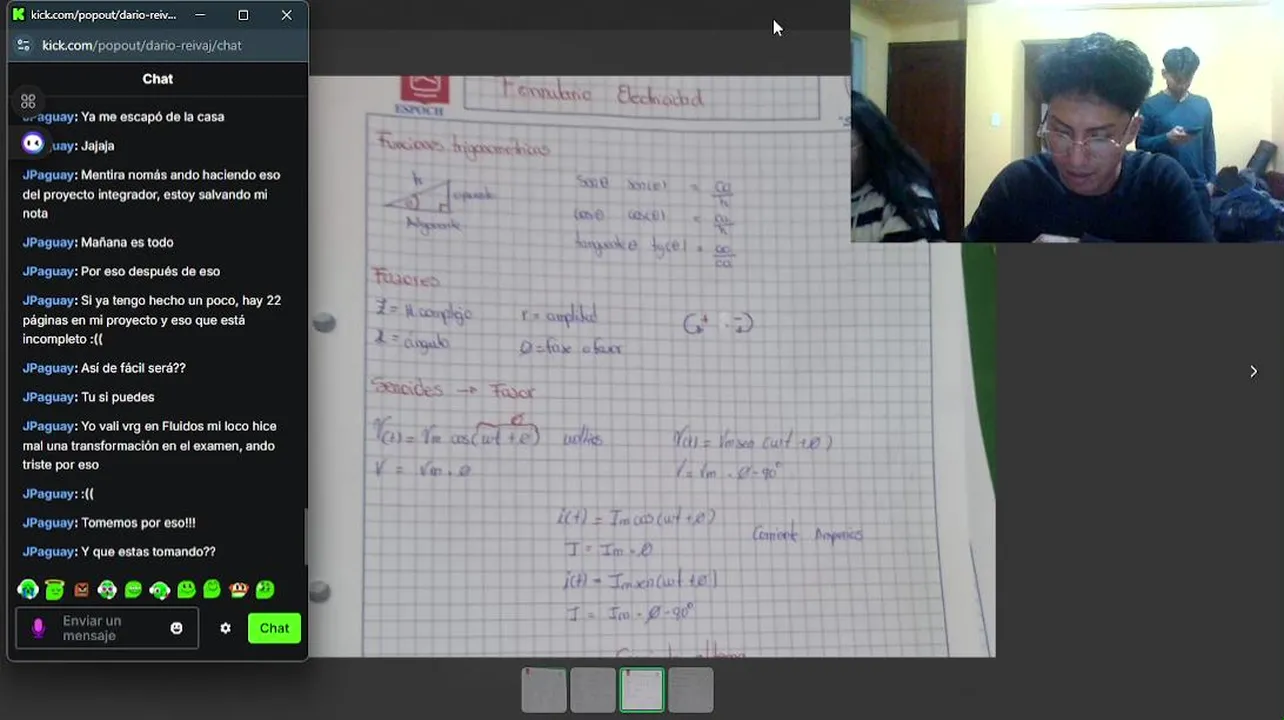 kick.com/popout/dario-reiv...
kick.com/popout/dario-reivaj/chat
Chat
JPaguay: Ya me escapó de la casa
uay: Jajaja
JPaguay: Mentira nomás ando haciendo eso
del proyecto integrador, estoy salvando mi
nota
JPaguay: Mañana es todo
JPaguay: Por eso después de eso
JPaguay: Si ya tengo hecho un poco, hay 22
páginas en mi proyecto y eso que está
incompleto :((
JPaguay: Así de fácil será??
JPaguay: Tu si puedes
JPaguay: Yo vali vrg en Fluidos mi loco hice
mal una transformación en el examen, ando
triste por eso
JPaguay: :((
JPaguay: Tomemos por eso!!!
JPaguay: Y que estas tomando??
Enviar un
mensaje
Chat
ESPOCH
Formulario Electricidad
Funciones trigonométricas
h
opuesto
Adyacente
senθ sen(θ) = co/h
cosθ cos(θ) =
tangenteθ tg(θ) = co/ca
Fasores
Z = N. complejo r = amplitud
∠ = ángulo Ø = fase o fasor
Senoides → Fasor
V(t) = Vm cos(wt + θ) voltios V(t) = Vm sen (wt + θ)
V = Vm · Ø V = Vm · Ø-90°
i(t) = Im cos(wt + θ)
Corriente Amperios
I = Im · Ø
i(t) = Im sen(wt + θ)
I = Im · Ø-90°